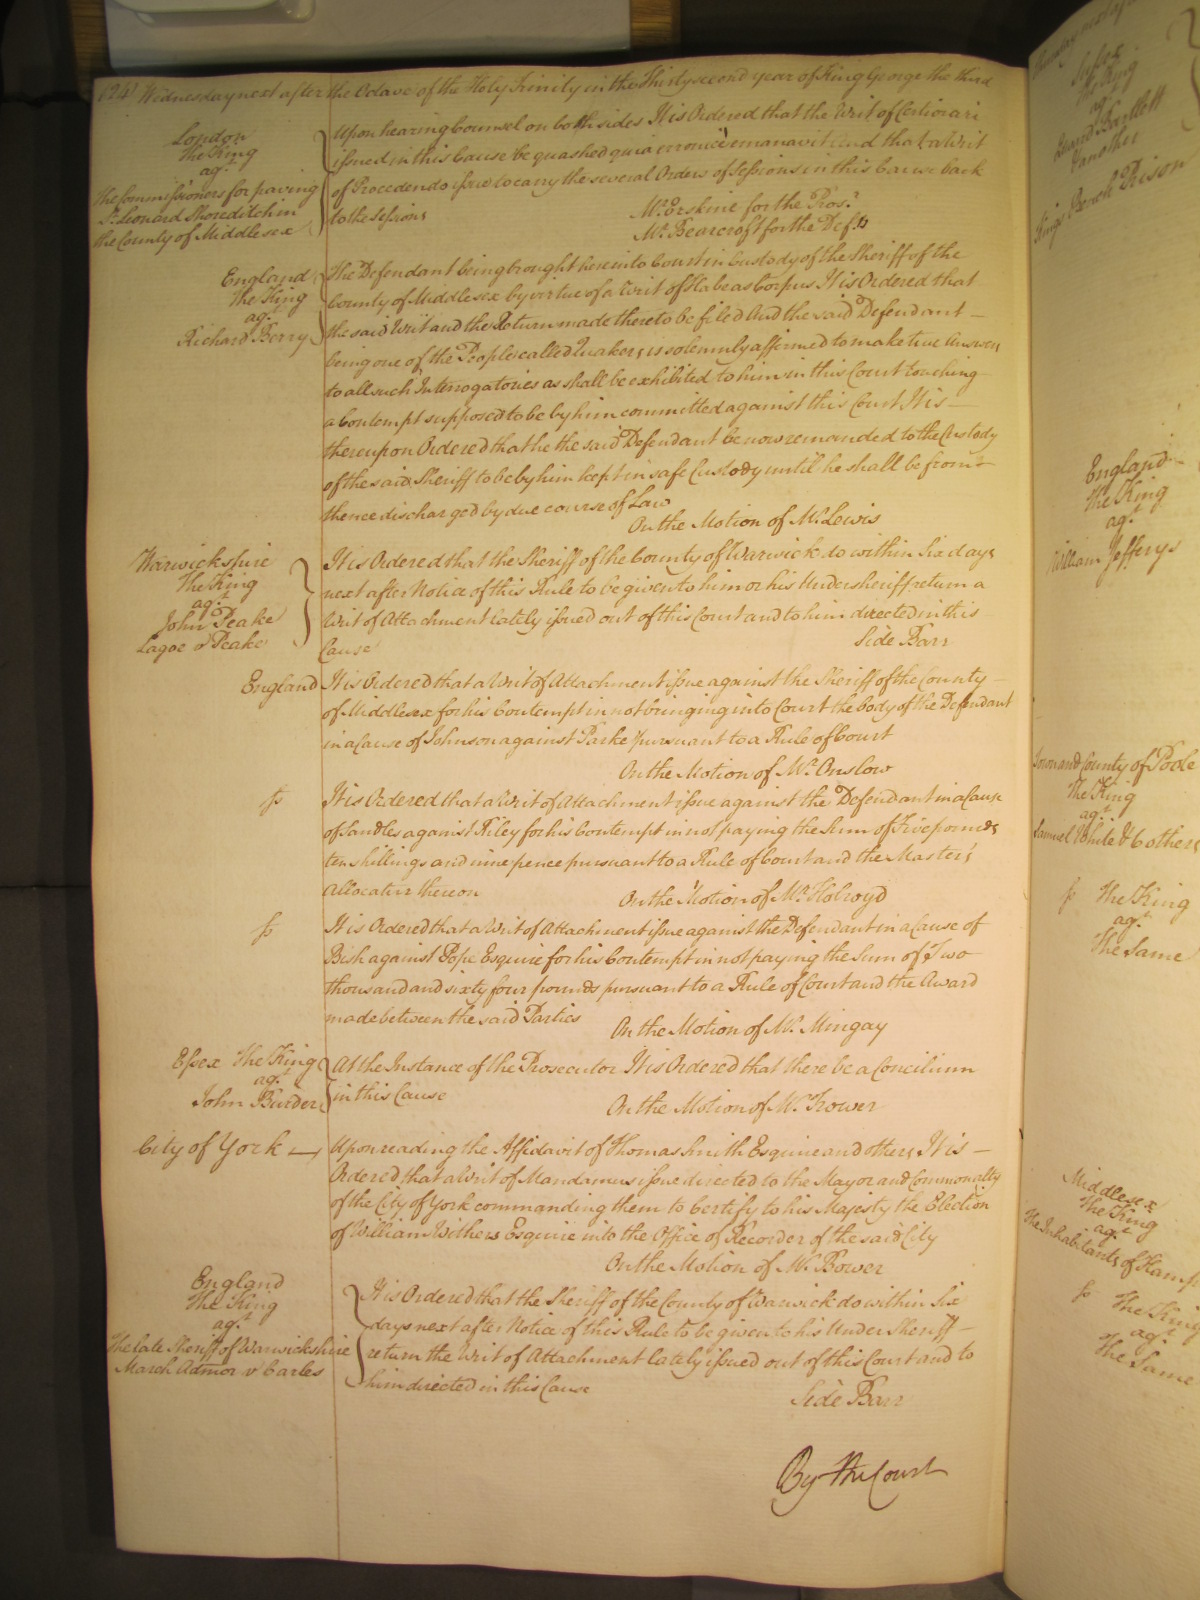 124 Wednesday next after the Octave of the Holy Trinity in the Thirty second year of King George the third
London
The King
agt
The Commissioners for paving
St Leonard Shoreditch in
the County of Middlesex
Upon hearing Counsel on both sides It is Ordered that the Writ of Certiorari
issued in this Cause be quashed quia erronicè emanavit And that a Writ
of Procedendo issue to carry the several Orders of Sessions in this Cause back
to the Sessions
Mr Erskine for the Pros.r
Mr Bearcroft for the Defts
England
The King
agt
Richard Berry
The Defendant being brought here into Court in Custody of the Sheriff of the
County of Middlesex by virtue of a Writ of Habeas Corpus It is Ordered that
the said Writ and the Return made thereto be filed And the said Defendant –
being one of the People called Quakers is solemnly affirmed to make true Answers
to all such Interrogatories as shall be exhibited to him in this Court touching
a Contempt supposed to be by him committed against this Court It is –
thereupon Ordered that he the said Defendant be now remanded to the Custody
of the said Sheriff to be by him kept in safe Custody until he shall be from –
thence discharged by due course of Law
On the Motion of Mr Lewis
Warwickshire
The King
agt
John Peake
Lagoe v Peake
It is Ordered that the Sheriff of the County of Warwick do within Six days
next after Notice of this Rule to be given to him or his Undersheriff return a
Writ of Attachment lately issued out of this Court and to him directed in this
Cause
Side Barr
England
It is Ordered that a Writ of Attachment issue against the Sheriff of the County –
of Middlesex for his Contempt in not bringing into Court the body of the Defendant
in a Cause of Johnson against Parke pursuant to a Rule of Court
On the Motion of Mr Onslow
It is Ordered that a Writ of Attachment issue against the Defendant in a Cause
of Sandles against Riley for his Contempt in not paying the Sum of Five pounds
ten shillings and nine pence pursuant to a Rule of Court and the Master's
Allocatur thereon
On the Motion of Mr Holroyd
It is Ordered that a Writ of Attachment issue against the Defendant in a Cause of
Bish against Pope Esquire for his Contempt in not paying the Sum of Two
thousand and sixty four pounds pursuant to a Rule of Court and the Award
made between the said Parties
On the Motion of Mr Mingay
Essex The King
agt
John Burder
At the Instance of the Prosecutor It is Ordered that there be a Concilium
in this Cause
On the Motion of Mr Trower
City of York –
Upon reading the Affidavit of Thomas Smith Esquire and others It is –
Ordered that a Writ of Mandamus issue directed to the Mayor and Commonalty
of the City of York commanding them to Certify to his Majesty the Election
of William Withers Esquire into the Office of Recorder of the said City
On the Motion of Mr Bower
England
The King
agt
The late Sheriff of Warwickshire
March Admor v Carles
It is Ordered that the Sheriff of the County of Warwick do within Six
days next after Notice of this Rule to be given to his Under Sheriff –
return the Writ of Attachment lately issued out of this Court and to
him directed in this Cause
Side Barr
By the Court
Sussex
The King
agt
Bartlett
& another
Kings Bench Prison
England
The King
agt
William Jefferys
Town and County of Poole
The King
agt
Samuel White & 6 others
The King
agt
The Same
Middlesex
The King
agt
The Inhabitants of Hamp
The King
agt
The Same